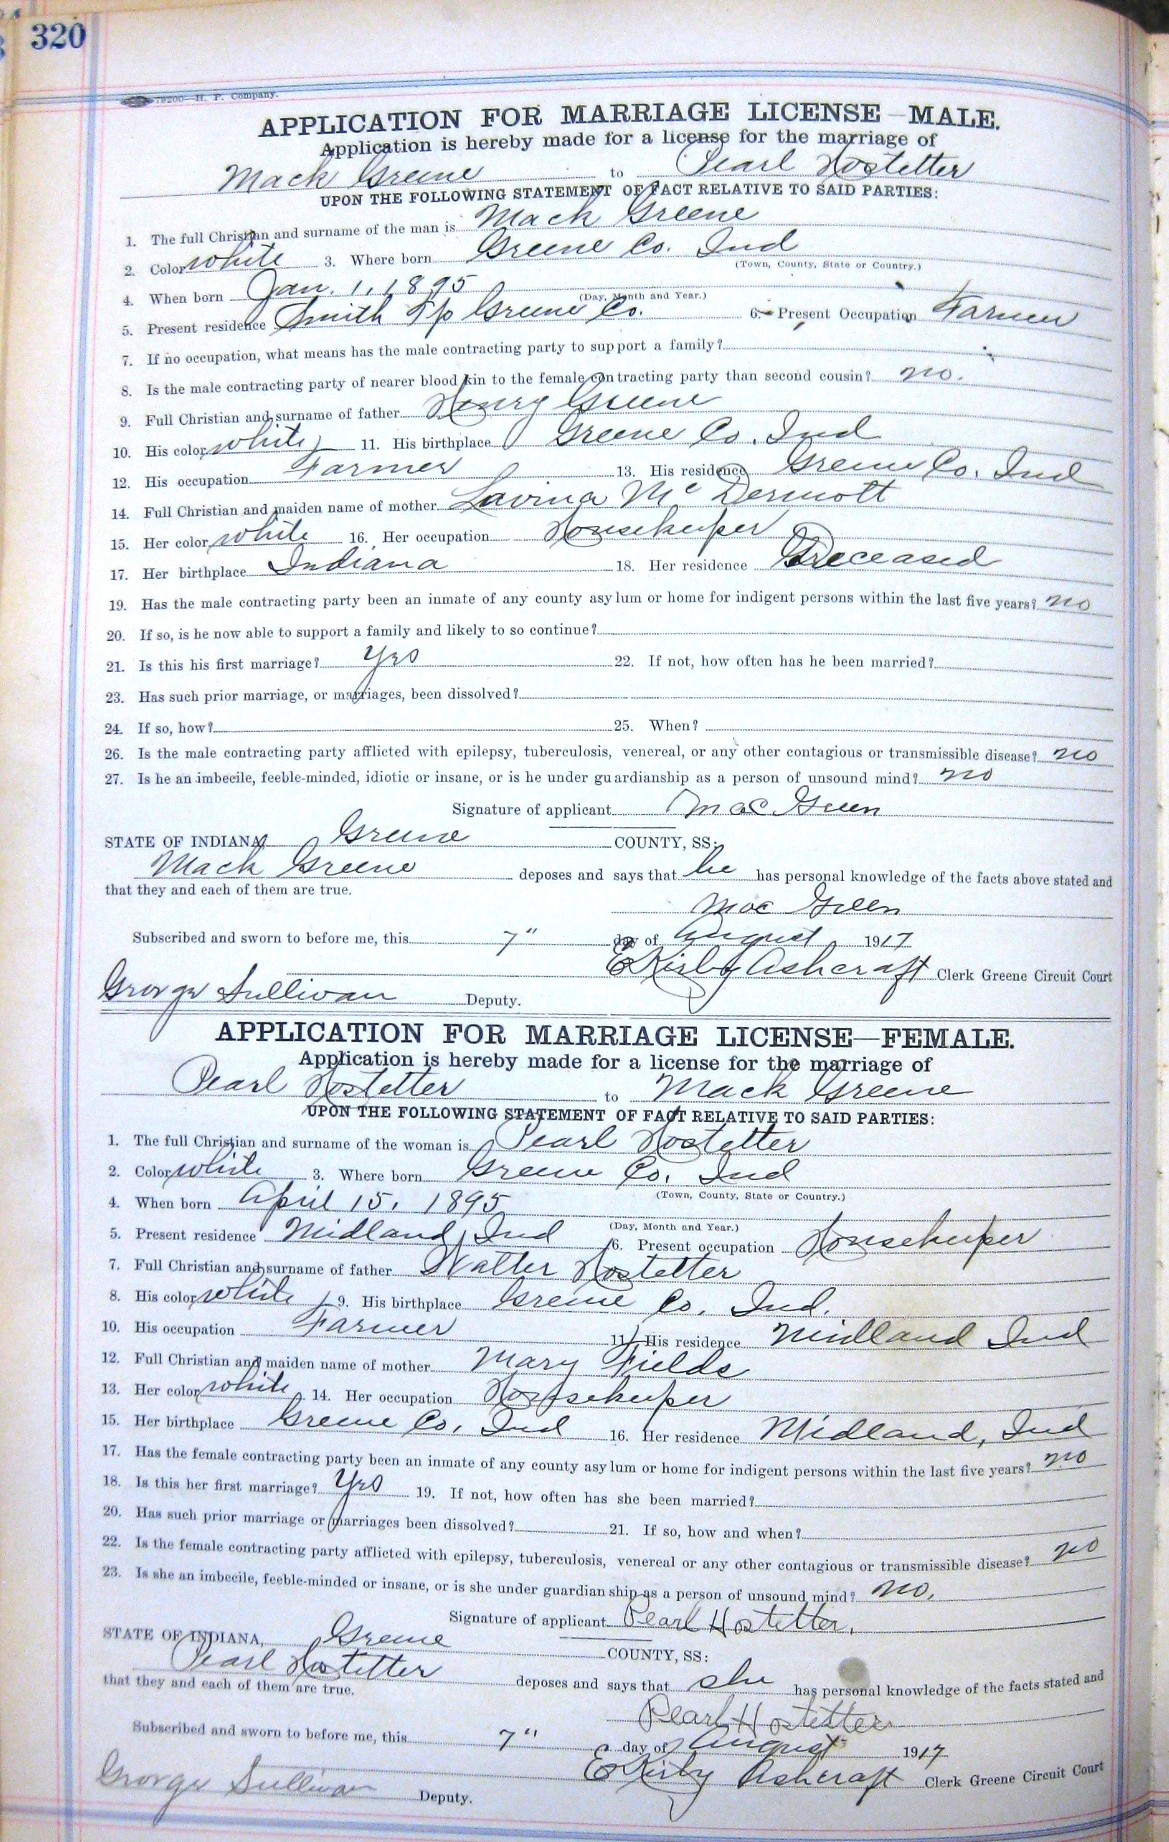 320
79200—H. P. Company.
APPLICATION FOR MARRIAGE LICENSE—MALE.
Application is hereby made for a license for the marriage of
Mack Greene to Pearl Hostetter
UPON THE FOLLOWING STATEMENT OF FACT RELATIVE TO SAID PARTIES:
1. The full Christian and surname of the man is Mack Greene
2. Color white 3. Where born Greene Co. Ind
(Town, County, State or Country.)
4. When born Jan. 1, 1895
(Day, Month and Year.)
5. Present residence Smith Tp Greene Co. 6. Present Occupation Farmer
7. If no occupation, what means has the male contracting party to support a family?
8. Is the male contracting party of nearer blood kin to the female contracting party than second cousin? no.
9. Full Christian and surname of father Henry Greene
10. His color white 11. His birthplace Greene Co. Ind
12. His occupation Farmer 13. His residence Greene Co. Ind
14. Full Christian and maiden name of mother Lavina McDermott
15. Her color white 16. Her occupation Housekeeper
17. Her birthplace Indiana 18. Her residence Deceased
19. Has the male contracting party been an inmate of any county asylum or home for indigent persons within the last five years? no
20. If so, is he now able to support a family and likely to so continue?
21. Is this his first marriage? Yes 22. If not, how often has he been married?
23. Has such prior marriage, or marriages, been dissolved?
24. If so, how? 25. When?
26. Is the male contracting party afflicted with epilepsy, tuberculosis, venereal, or any other contagious or transmissible disease? no
27. Is he an imbecile, feeble-minded, idiotic or insane, or is he under guardianship as a person of unsound mind? no
Signature of applicant Mac Green
STATE OF INDIANA Greene COUNTY, SS:
Mack Greene deposes and says that he has personal knowledge of the facts above stated and
that they and each of them are true.
Mac Green
Subscribed and sworn to before me, this 7" day of August 1917
E Kirby Ashcraft Clerk Greene Circuit Court
George Sullivan Deputy.
APPLICATION FOR MARRIAGE LICENSE—FEMALE.
Application is hereby made for a license for the marriage of
Pearl Hostetter to Mack Greene
UPON THE FOLLOWING STATEMENT OF FACT RELATIVE TO SAID PARTIES:
1. The full Christian and surname of the woman is Pearl Hostetter
2. Color white 3. Where born Greene Co. Ind
(Town, County, State or Country.)
4. When born April 15, 1895
(Day, Month and Year.)
5. Present residence Midland, Ind 6. Present occupation Housekeeper
7. Full Christian and surname of father Walter Hostetter
8. His color white 9. His birthplace Greene Co. Ind.
10. His occupation Farmer 11. His residence Midland Ind
12. Full Christian and maiden name of mother Mary Fields
13. Her color white 14. Her occupation Housekeeper
15. Her birthplace Greene Co, Ind 16. Her residence Midland, Ind
17. Has the female contracting party been an inmate of any county asylum or home for indigent persons within the last five years? no
18. Is this her first marriage? Yes 19. If not, how often has she been married?
20. Has such prior marriage or marriages been dissolved? 21. If so, how and when?
22. Is the female contracting party afflicted with epilepsy, tuberculosis, venereal or any other contagious or transmissible disease? no
23. Is she an imbecile, feeble-minded or insane, or is she under guardianship as a person of unsound mind? no.
Signature of applicant Pearl Hostetter.
STATE OF INDIANA, Greene COUNTY, SS:
Pearl Hostetter deposes and says that she has personal knowledge of the facts stated and
that they and each of them are true.
Pearl Hostetter
Subscribed and sworn to before me, this 7" day of August 1917
E Kirby Ashcraft Clerk Greene Circuit Court
George Sullivan Deputy.